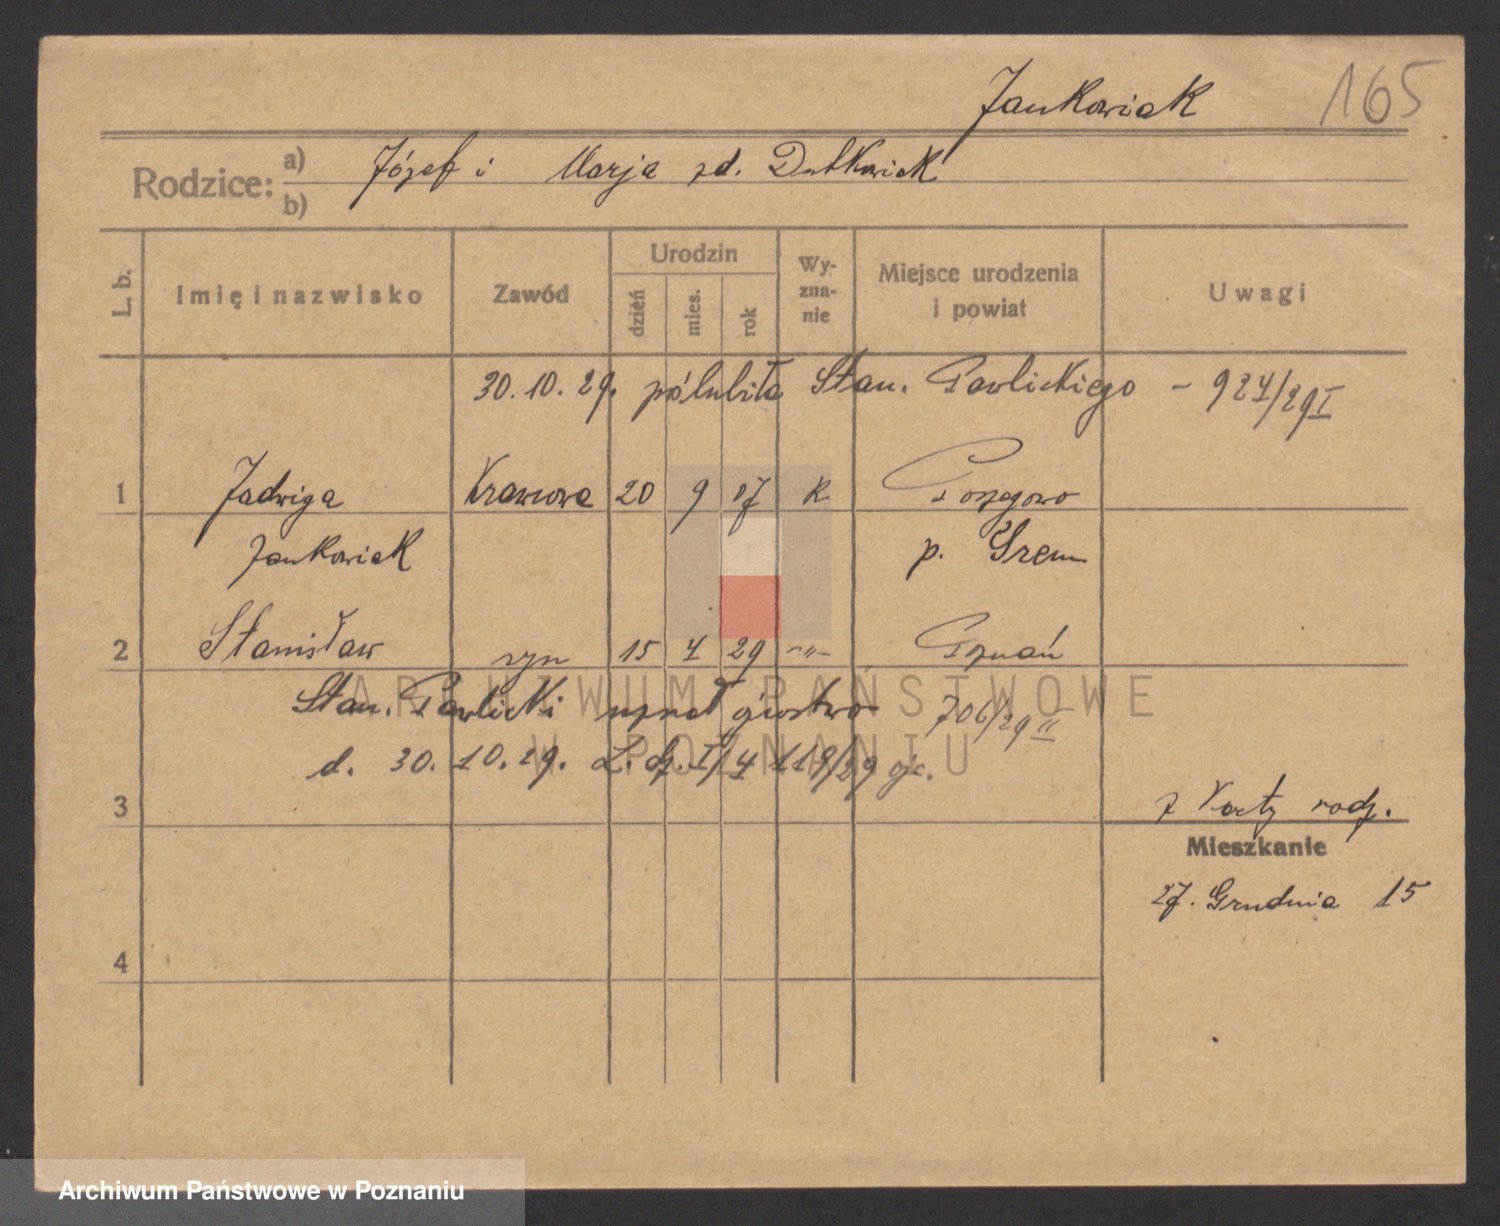 Jankowiak 165
Rodzice: a) Józef i Marja zd. Dutkowiak
b)
L. b. Imię i nazwisko Zawód Urodzin dzień mies. rok Wyznanie Miejsce urodzenia i powiat Uwagi
30.10.29. poślubiła Stan. Pawlickiego - 924/29 I
1 Jadwiga Krawcowa 20 9 07 k
Jankowiak p. Śrem
2 Stanisław syn 15 4 29 -"- Poznań
Stan. Pawlicki uznał ojcostwo 706/29 II
d. 30.10.29. L. dz. I/4 118/29
3 z Karty rodz.
Mieszkanie
27. Grudnia 15
4
ARCHIWUM PAŃSTWOWE
W POZNANIU
Archiwum Państwowe w Poznaniu